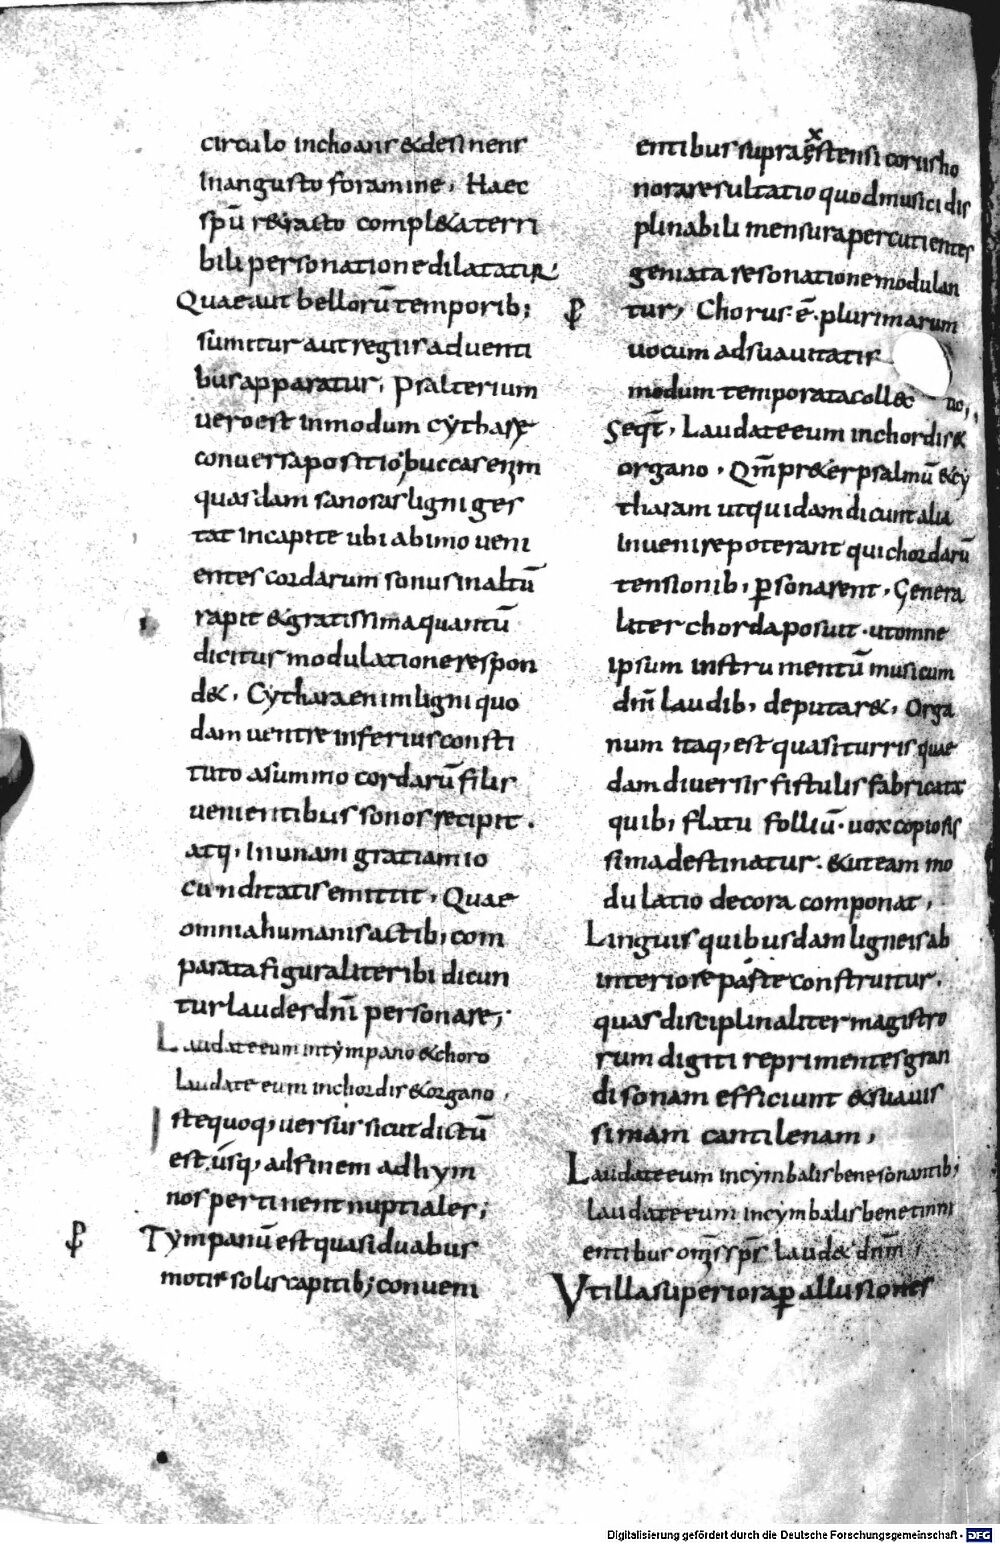 circulo inchoans & desinens
Inangusto foramine, Haec
spū reiacto compl&aterri
bili personatione dilatatur
Quae aut bellorū temporib;
sumitur aut regiis aduenti
bus apparatur, psalterium
uero est inmodum cytharę
conuersa positio, buccas enim
quasdam sanoras ligni ges
tat incapite ubi abimo ueni
entes cordarum sonus inaltū
rapit & gratissima quantū
dicitur modulatione respon
d&, Cythara enim ligni quo
dam uentre inferius consti
tuto asummo cordarū filis
uenientibus sonos recipit.
atq; Inunam gratiam io
cunditatis emittit, Quae
omnia humanis actib; com
parata figuraliter ibi dicun
tur laudes dñi personare;
Laudate eum intympano & choro
laudate eum inchordis & organo,
Iste quoq; uersus sicut dictū
est. usq; ad finem ad hym
nos pertinent nuptiales;
Tympanū est quasi duabus
motis solis capitib; conueni
entibus supra extensi coriis ho
nora resultatio quod musici dis
plinabili mensura percutientes
gemata resonatione modulan
tur, Chorus ē. plurimarum
uocum ad suauitatis
modum temporata coll&c no;
Seqt̄, Laudate eum inchordis &
organo. Qm̄ pr&er psalmū & cy
tharam ut quidam dicunt alia
Inuenire poterant qui chordarū
tensionib; p̱sonarent. Genera
liter chorda posuit. ut omne
ipsum instrumentū musicum
dn̄i laudib; deputar&, Orga
num itaq; est quasi turris quae
dam diuersis fistulis fabricata
quib; flatu folliū. uox copiosis
sima destinatur. & ut eam mo
dulatio decora componat,
Linguis quibusdam ligneis ab
interiore parte construitur.
quas disciplinaliter magistro
rum digiti reprimentes gran
disonam efficiunt & suauis
simam cantilenam,
Laudate eum incymbalis bene sonantib;
laudate eum incymbalis bene tinni
entibus om̄s sp̄s laud& dnm̄;
Ut illa superiora p̱ allusiones
Digitalisierung gefördert durch die Deutsche Forschungsgemeinschaft - DFG